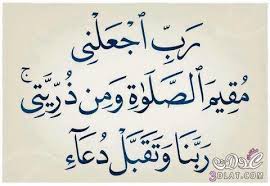 رَبِّ ٱجْعَلْنِى
مُقِيمَ ٱلصَّلَوٰةِ وَمِن ذُرِّيَّتِى ۚ
رَبَّنَا وَتَقَبَّلْ دُعَآءِ
عدلات
3DLAT.COM